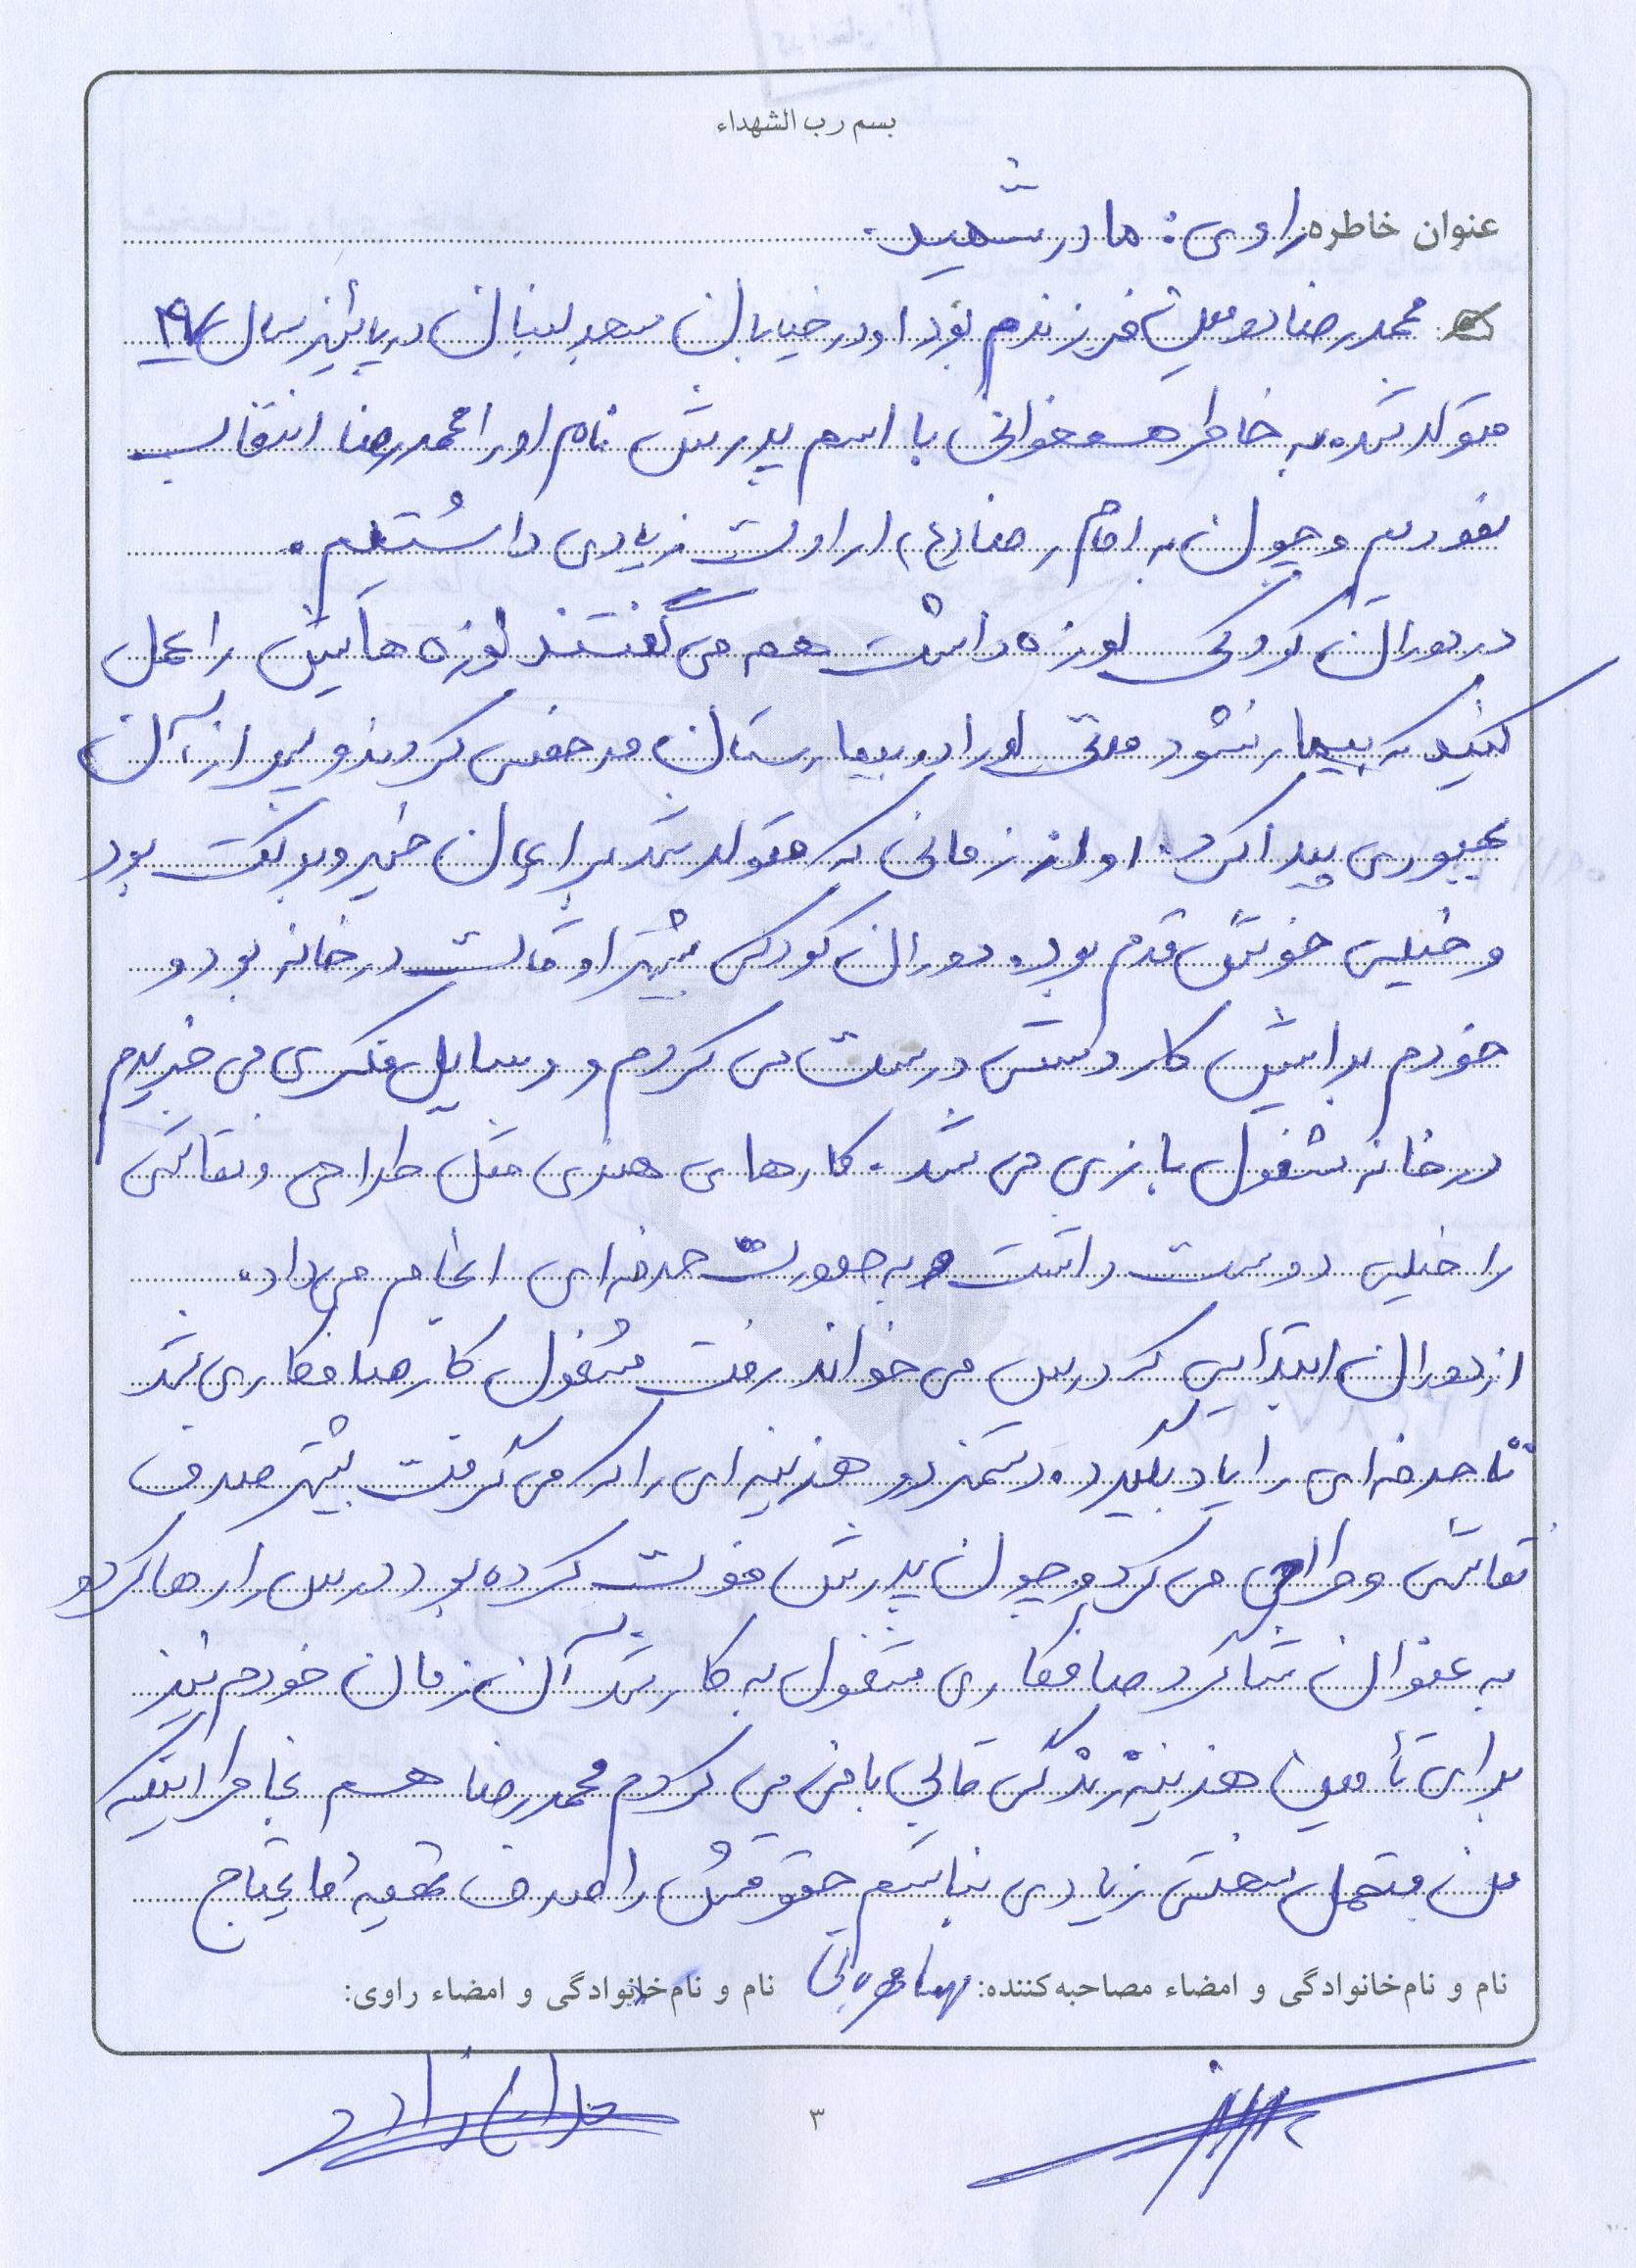 بسم رب الشهداء
عنوان خاطره: راوی: مادر شهید.
محمدرضا دومین فرزندم بود او در خیابان سعد در پائیز سال
متولد شده به خاطر هم خوانی با اسم پدرش نام او را محمدرضا انتخاب
نمودیم و چون به امام رضا (ع) ارادت زیادی داشتیم.
در دوران کودکی لوزه داشت همه می گفتند لوزه هایش را عمل
کنید که بیمار نشود مدتی او را در بیمارستان مرخص کردند و بعد از آن
بهبودی پیدا کرد. او از زمانی که متولد شد برایمان خیر و برکت بود
و خیلی خوش قدم بود. دوران کودکی بیشتر اوقات در خانه بود و
خودم برایش کاردستی درست می کردم و وسایل فکری می خریدم
در خانه مشغول بازی می شد. کارهای هنری مثل طراحی و نقاشی
را خیلی دوست داشت و به صورت حرفه ای انجام می داد.
از دوران ابتدایی که درس می خواند رفت مشغول کار صافکاری شد
تا حرفه ای را یاد بگیرد. دستمزد و هزینه ای را که می گرفت بیشتر صرف
نقاشی و طراحی می کرد و چون پدرش فوت کرده بود درس را رها کرد و
به عنوان شاگرد صافکاری مشغول به کار شد آن زمان خودم نیز
برای تأمین هزینه زندگی قالی بافی می کردم محمدرضا هم بخاطر اینکه
من متحمل سختی زیادی نباشم حقوقش را صرف تهیه مایحتاج
نام و نام‌خانوادگی و امضاء مصاحبه‌کننده: نام و نام‌خانوادگی و امضاء راوی:
۳